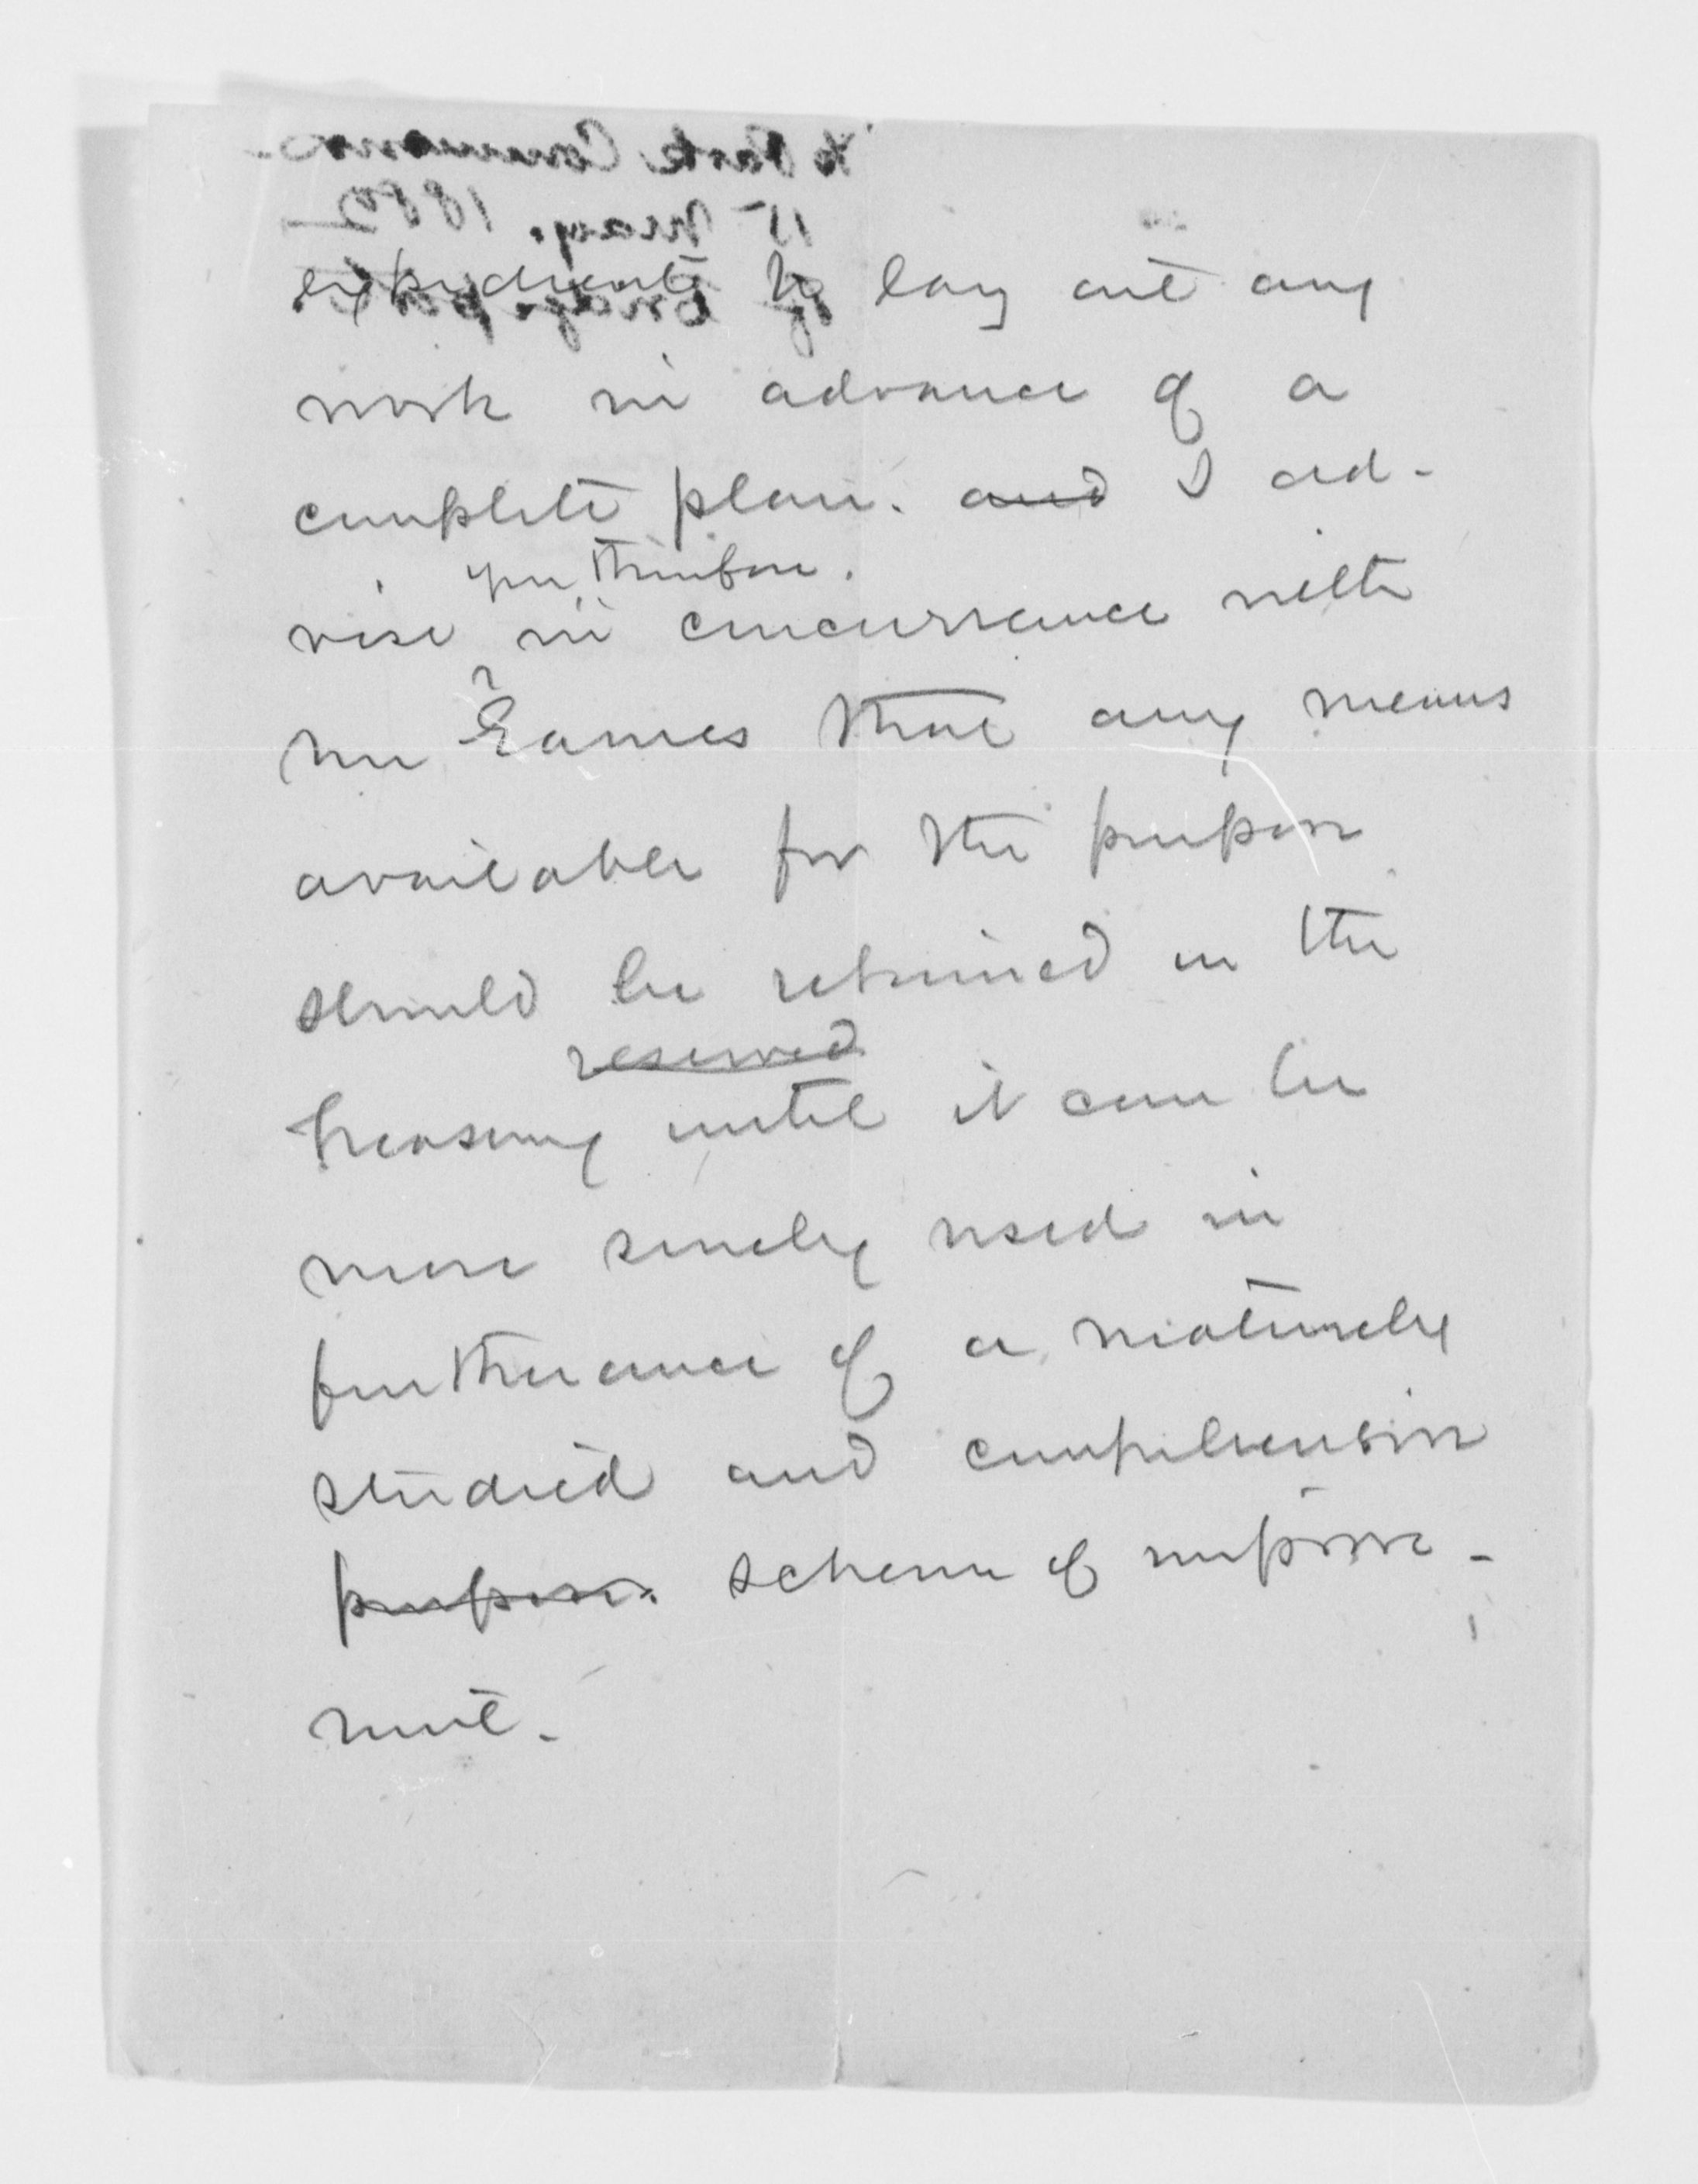 To Park Commons.
15 May. 1882
of Bridgeport.
expedient to lay out any
work in advance of a
complete plan. and I ad-
you therefore.
vise in concurrence with
Mr Eames that any means
available for the purpose
should be retained in the
reserved
treasury until it can be
more surely used in
furtherance of a maturely
studied and comprehensive
purpose. scheme of improve-
ment.